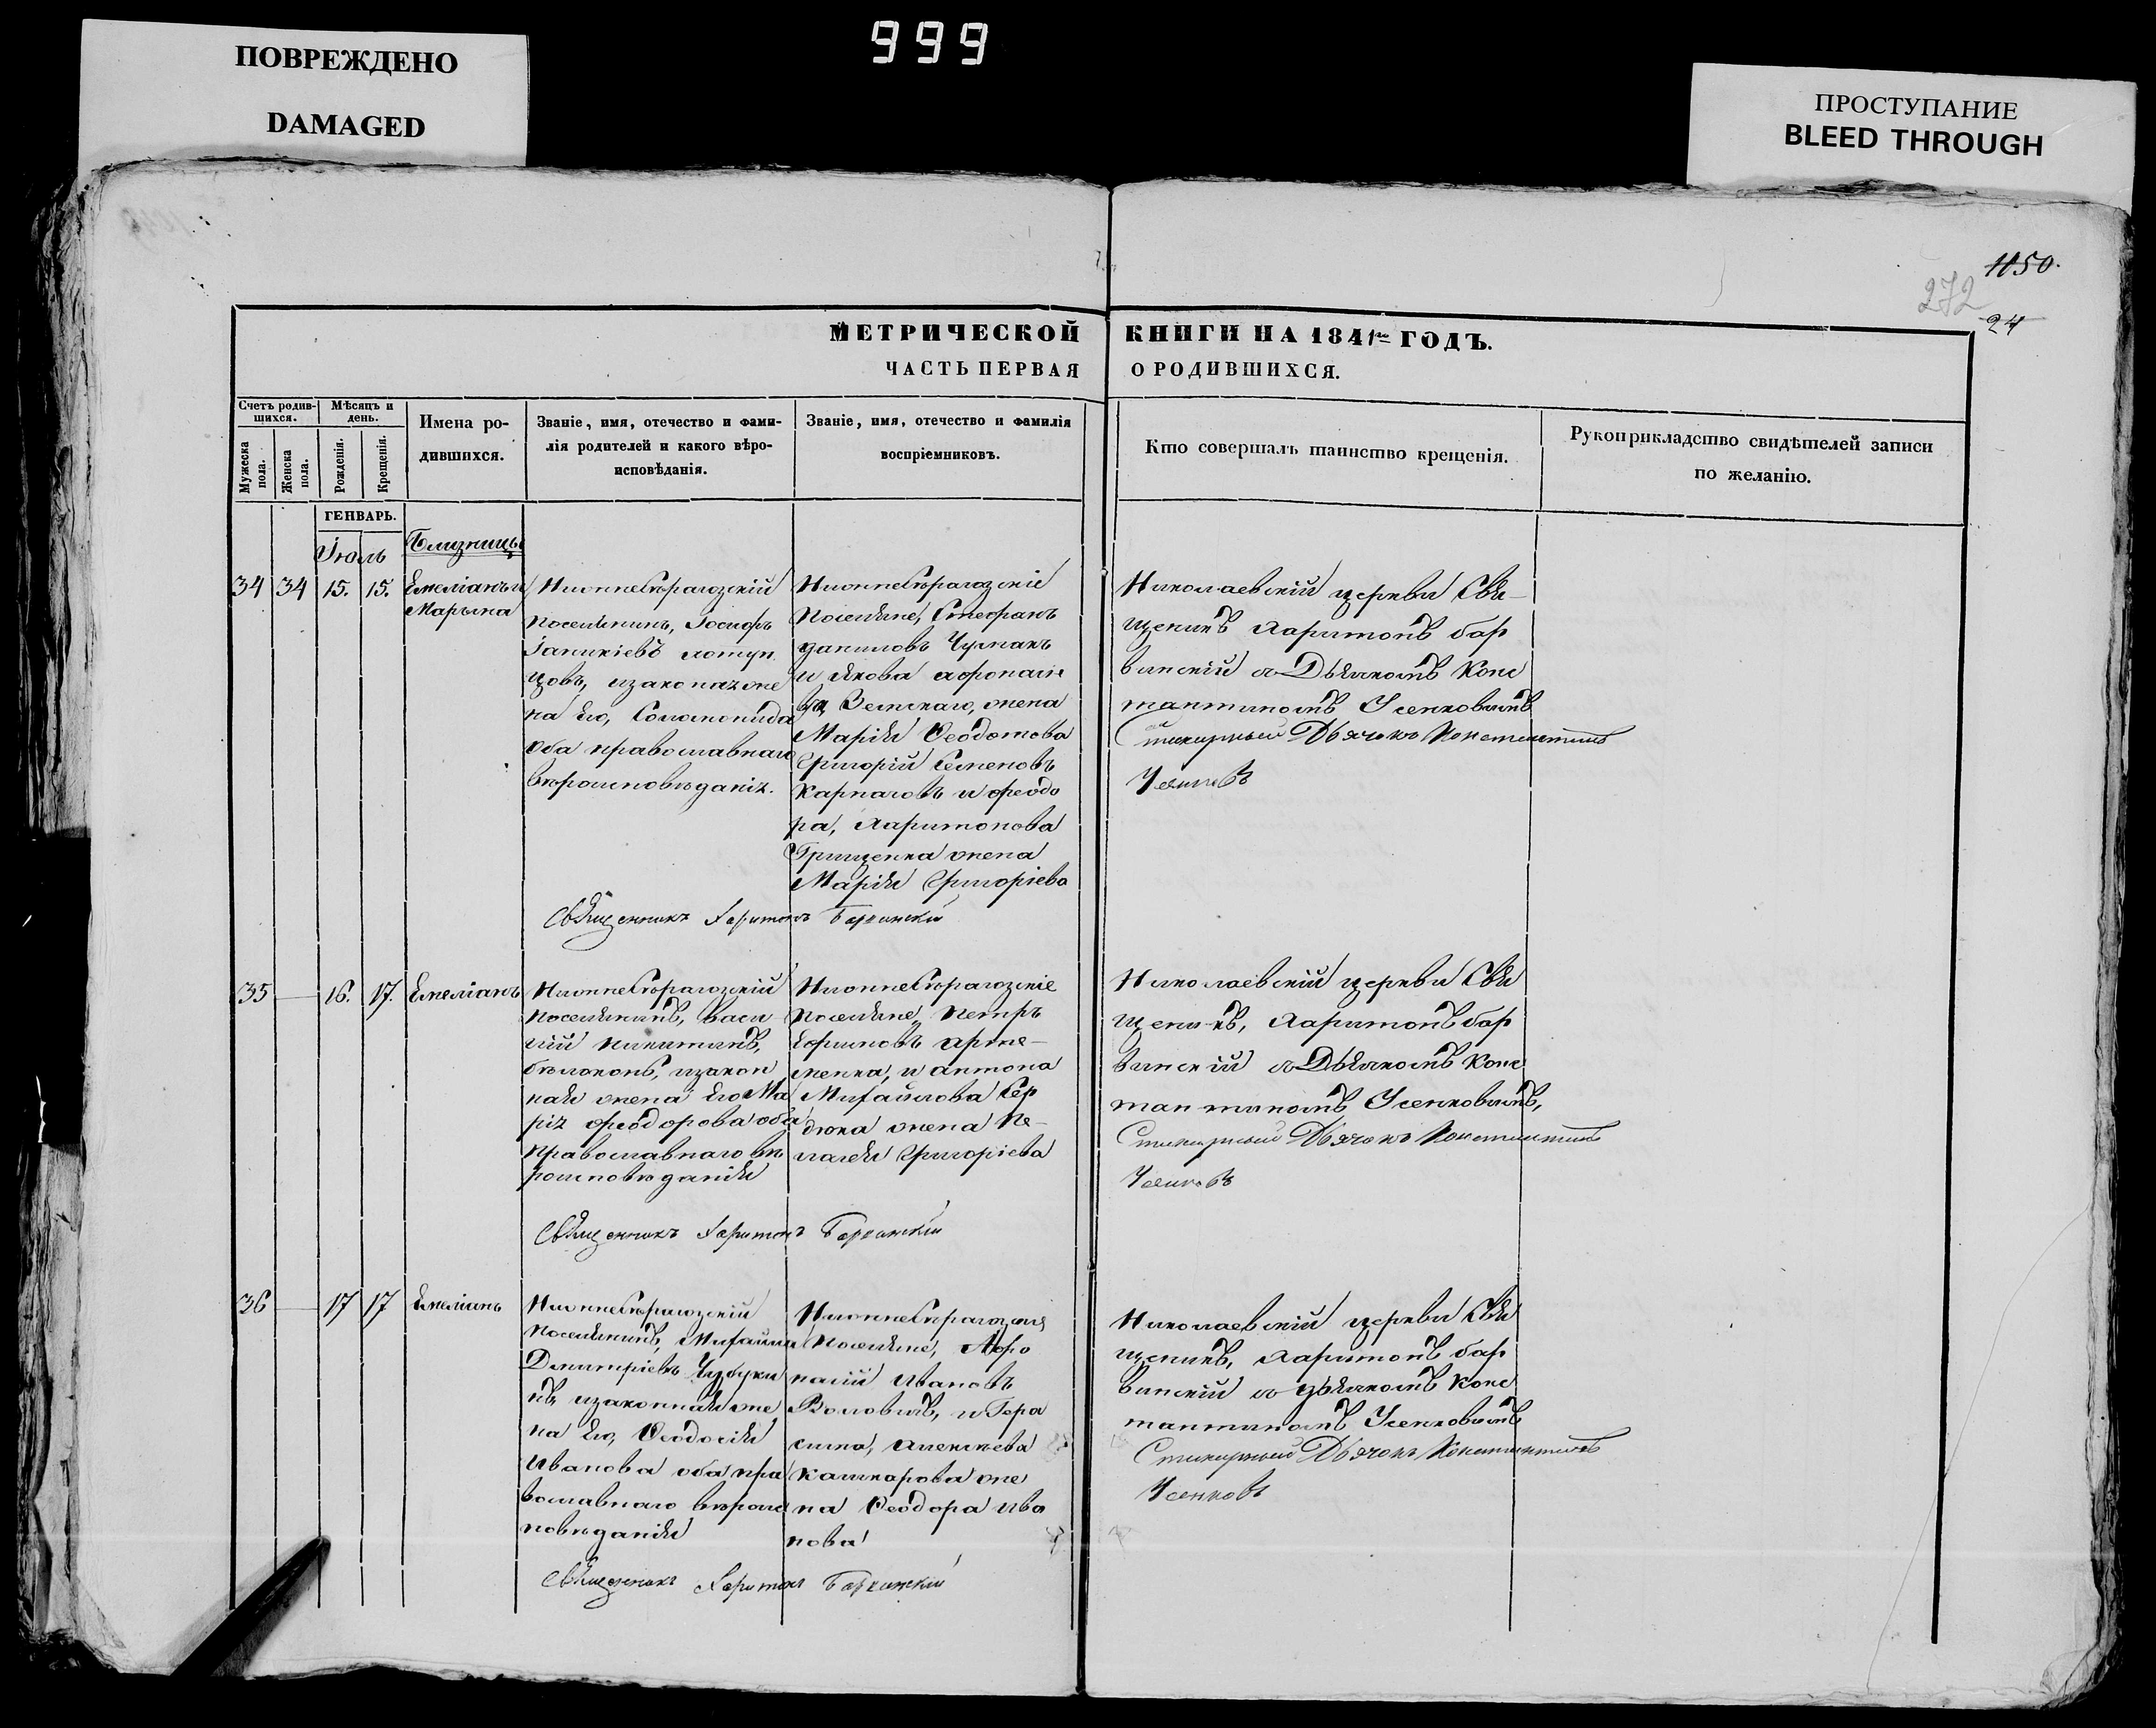 999
ПОВРЕЖДЕНО
DAMAGED
ПРОСТУПАНИЕ
BLEED THROUGH
1150.
272
24
МЕТРИЧЕСКОЙ КНИГИ НА 1841го ГОДЪ.
ЧАСТЬ ПЕРВАЯ О РОДИВШИХСЯ.
Счетъ родив-
шихся.
Мужеска
пола.
Женска
пола.
Мѣсяцъ и
день.
Рожденія.
Крещенія.
Имена ро-
дившихся.
Званіе, имя, отечество и фами-
лія родителей и какого вѣро-
исповѣданія.
Званіе, имя, отечество и фамилія
воспріемниковъ.
Кто совершалъ таинство крещенія.
Рукоприкладство свидѣтелей записи
по желанію.
ГЕНВАРЬ.
Іюль
Близницы
34 34 15. 15.
Емеліанъ и
Марина
Нижнесѣрагозскій
поселянинъ,
Іаникіевъ
на его,
оба православнаго
вѣроисповѣданія.
Нижнесѣрагозскіе
поселяне, Стефанъ
даниловъ Чумакъ
и Якова афонасіе
ва Земскаго, жена
Марія Феодотова
Григорій Семеновъ
и феодо
ра, Харитонова
Грищенка жена
Марія Григоріева
Николаевскій церкви Свя-
щеникъ Харитонъ бар
винскій съ Дьячкомъ Конс
тантиномъ Усенковымъ
Стихарный Дьячокъ Константинъ
Усенковъ
Священникъ Харитонъ Барвинскій
35 — 16. 17. Емеліанъ
Нижнесѣрагозскій
поселянинъ, Васи
лій никитинъ,
бѣлоконь, изакон
ная жена его Ма
рія феодорова оба
православнаго вѣ
роисповѣданія
Нижнесѣрагозскіе
поселяне, Петръ
Ефимовъ арте-
менка, и антона
Михайлова Сер
дюка жена Пе-
лагея Григоріева
Николаевскій церкви Свя
щеникъ, Харитонъ бар
винскій съ Дьячкомъ Конс
тантиномъ Усенковымъ,
Стихарный Дьячокъ Константинъ
Усенковъ
Священникъ Харитонъ Барвинскій
36 — 17 17 Емеліанъ
Нижнесѣрагозскій
поселянинъ, Михаилъ
Димитріевъ
изаконная же
на его, Феодосія
Иванова оба пра
вославнаго вѣроис
повѣданія
Нижнесѣрагозскія
поселяне, Афо
насій Ивановъ
и Гера
сима, Алексѣева
Кашкарова же
на Феодора Ива
нова
Николаевскій церкви Свя
щеникъ, Харитонъ бар
винскій съ дьячкомъ Конс
тантиномъ Усенковымъ
Стихарный Дьячокъ Константинъ
Усенковъ
Священникъ Харитонъ Барвинскій